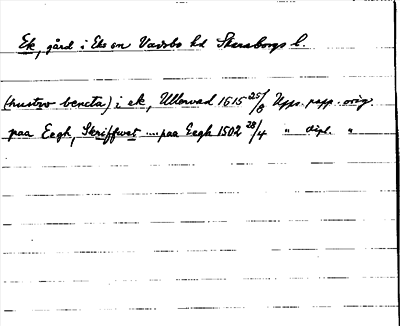 Ek, gård i Eks sn Vadsbo hd Skaraborgs l.
(hustrv bencta) i ek, Ullervad 1615 25/8 Upps. papp. orig.
paa Eegh, Skriffwat .... paa Eegh 1502 28/4 " dipl. "